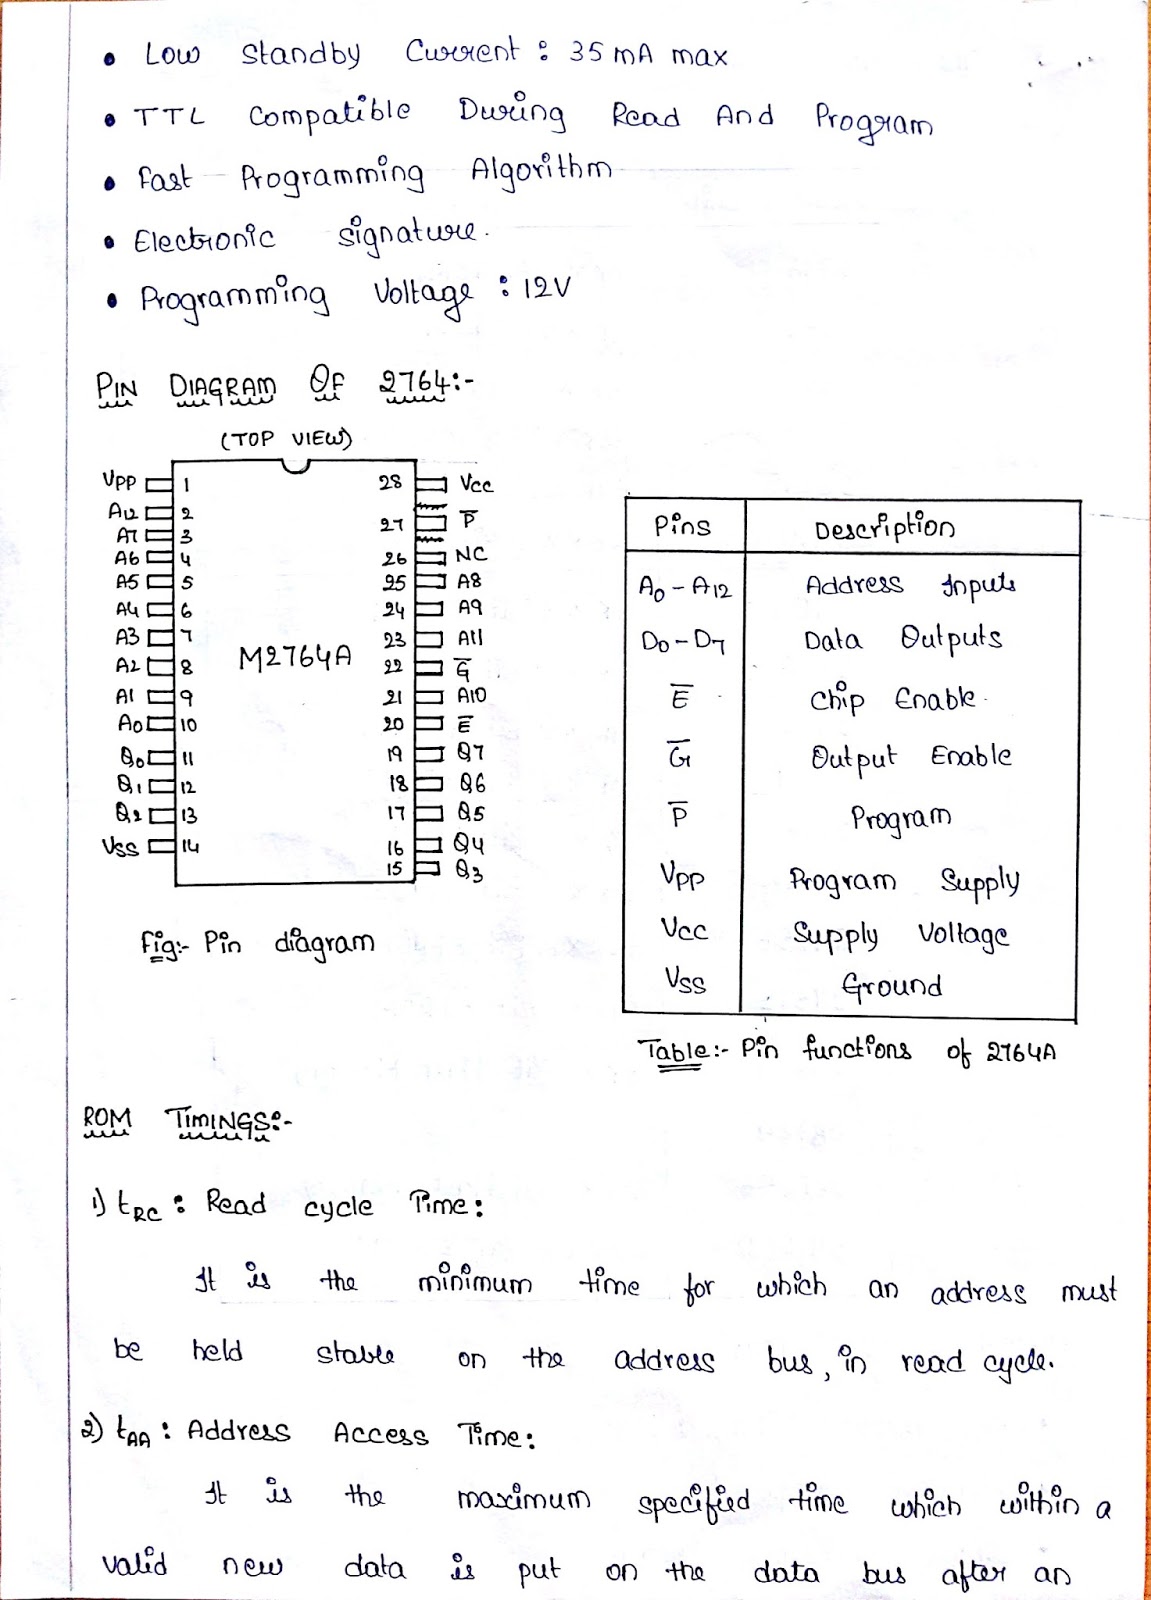 • Low Standby Current : 35 mA max
• TTL Compatible During Read And Program
• Fast Programming Algorithm
• Electronic signature.
• Programming Voltage : 12V
PIN DIAGRAM OF 2764:-
(TOP VIEW)
VPP 1 28 Vcc
A12 2 27 P̅
A7 3
A6 4 26 NC
A5 5 25 A8
A4 6 24 A9
A3 7 23 A11
M2764A
A2 8 22 G̅
A1 9 21 A10
A0 10 20 E̅
Q0 11 19 Q7
Q1 12 18 Q6
Q2 13 17 Q5
VSS 14 16 Q4
15 Q3
Fig:- Pin diagram
Pins Description
A0 - A12 Address Inputs
D0 - D7 Data Outputs
E̅ Chip Enable.
G̅ Output Enable
P̅ Program
VPP Program Supply
Vcc Supply Voltage
VSS Ground
Table:- Pin functions of 2764A
ROM TIMINGS:-
1) tRC : Read cycle Time :
It is the minimum time for which an address must
be held stable on the address bus, in read cycle.
2) tAA : Address Access Time :
It is the maximum specified time which within a
valid new data is put on the data bus after an